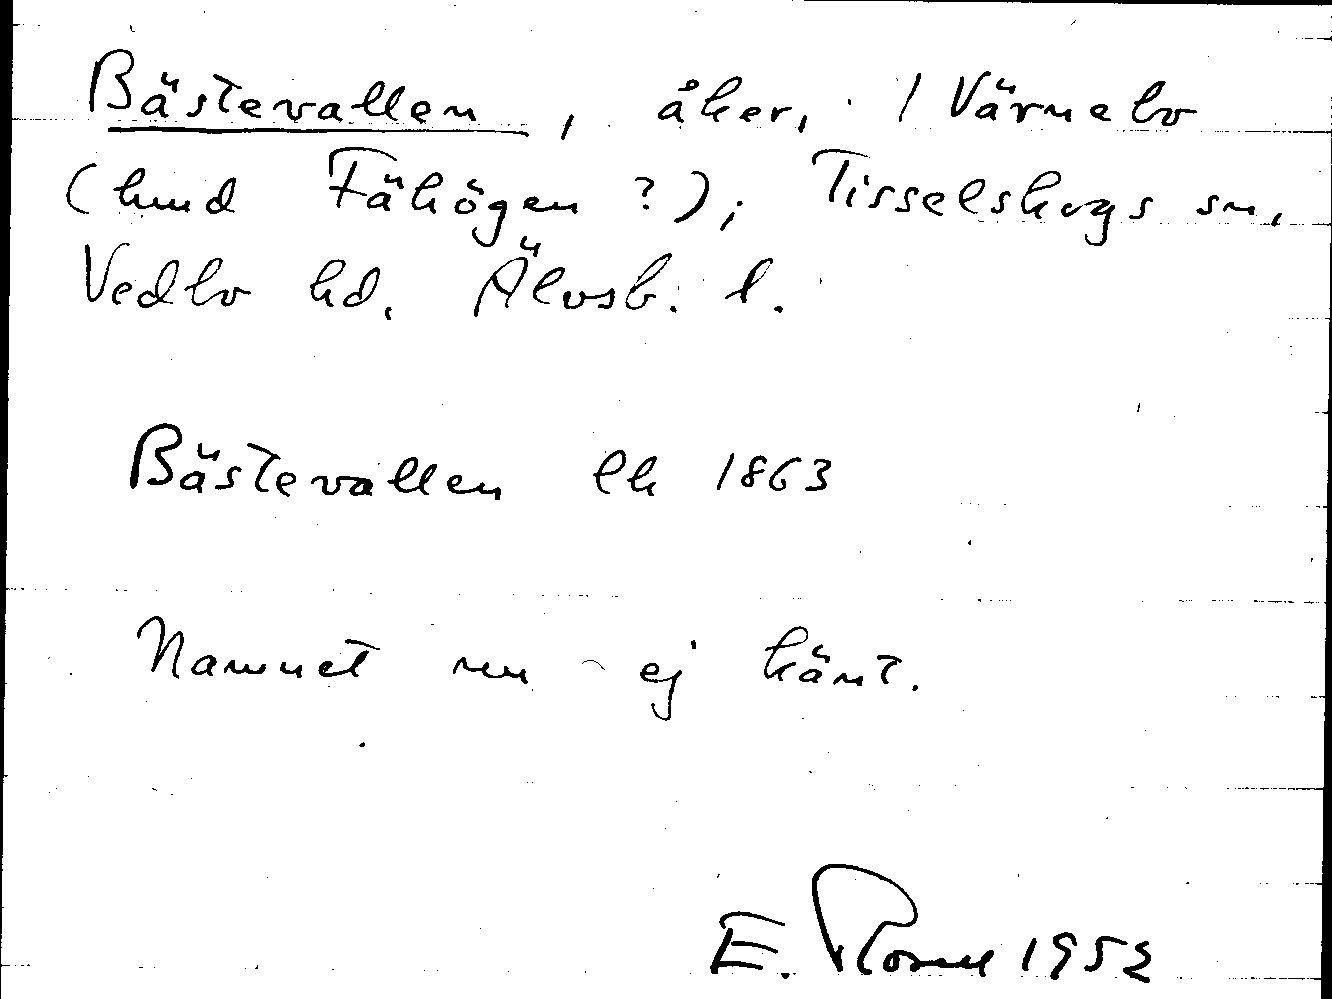 Bästevallen, åker, / Värnebo
(hmd Fähögen ?); Tisselskogs sn,
Vedbo hd. Älvsb. l.
Bästevallen lh 1863
Namnet nu ej känt.
E. 1952